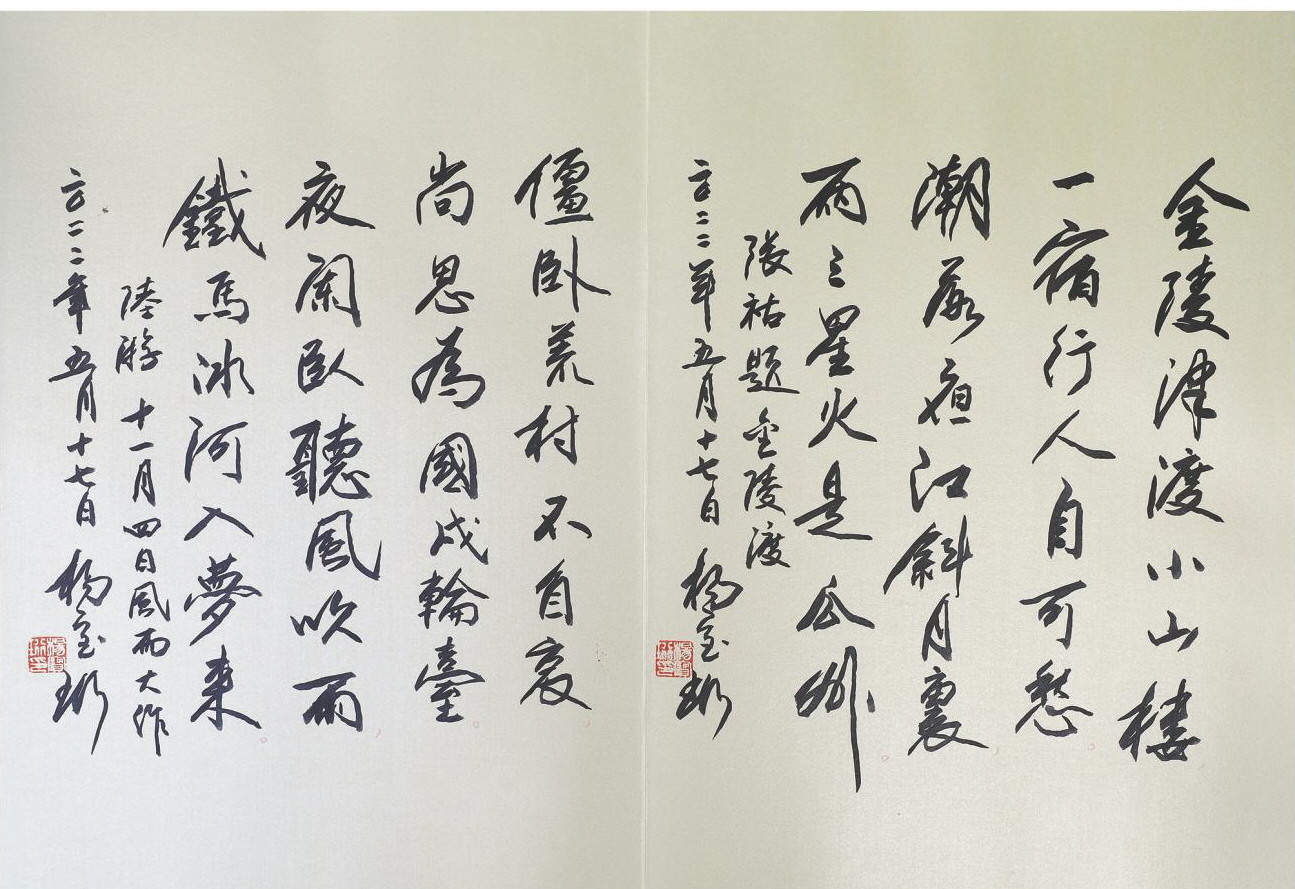 金陵津渡小山樓
一宿行人自可愁
潮落夜江斜月裏
兩三星火是瓜洲
張祜題金陵渡
二〇二二年五月十七日 楊宝珩
楊寶珩印
僵卧荒村不自哀
尚思為國戍輪臺
夜闌臥聽風吹雨
鐵馬冰河入夢来
陸游 十一月四日風雨大作
二〇二二年五月十七日 楊宝珩
楊寶珩印